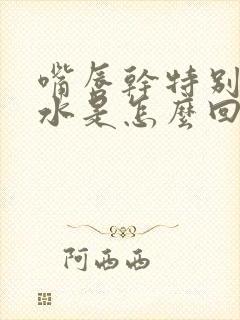 嘴唇幹特别
水是怎麽回
阿西西